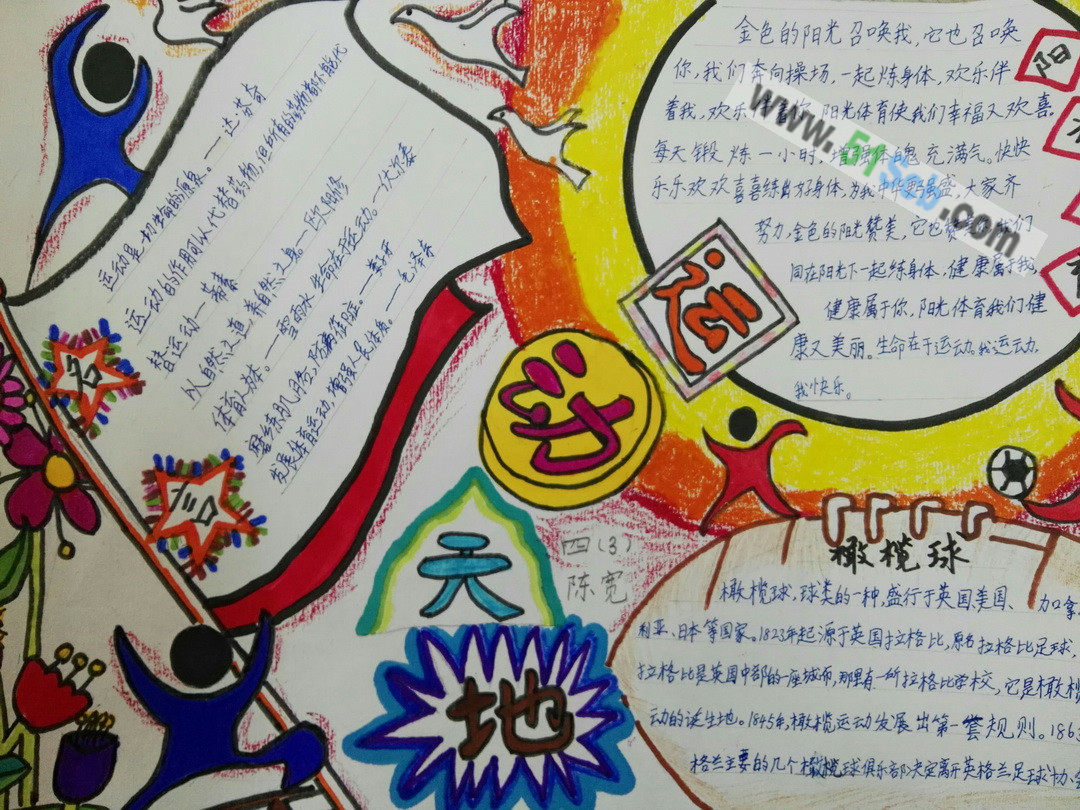 运动是一切生命的源泉。——达芬奇
运动的作用可以代替药物,但所有的药物都不能代
替运动—蒂素
以自然之道—养自然之身—欧阳修
体育人之本。——雪雨水 生命在于运动。—伏尔泰
发展体育运动,增强人民体质。—毛泽东
名
言
金色的阳光召唤我,它也召唤
你,我们奔向操场,一起炼身体,欢乐伴
着我,欢乐伴着你,阳光体育使我们幸福又欢喜。
每天锻炼一小时,增强体魄充满气。快快
乐乐欢欢喜喜练出好身体,为我中华要强盛,大家齐
努力,金色的阳光赞美,它也赞美你我们
同在阳光下一起练身体,健康属于我,
健康属于你,阳光体育我们健
康又美丽。生命在于运动。我运动,
我快乐。
阳
运
动
天
地
四(3)
陈宽
橄榄球
橄榄球,球类的一种,盛行于英国、美国、加拿
利亚、日本等国家。1823年起源于英国拉格比,原名拉格比足球,
拉格比是英国中部的一座城市,那里有一所拉格比学校,它是橄榄
动的诞生地。1845年,橄榄运动发展出第一套规则。1863
格兰主要的几个橄榄球俱乐部决定离开英格兰足球协会
www.51Scb.com